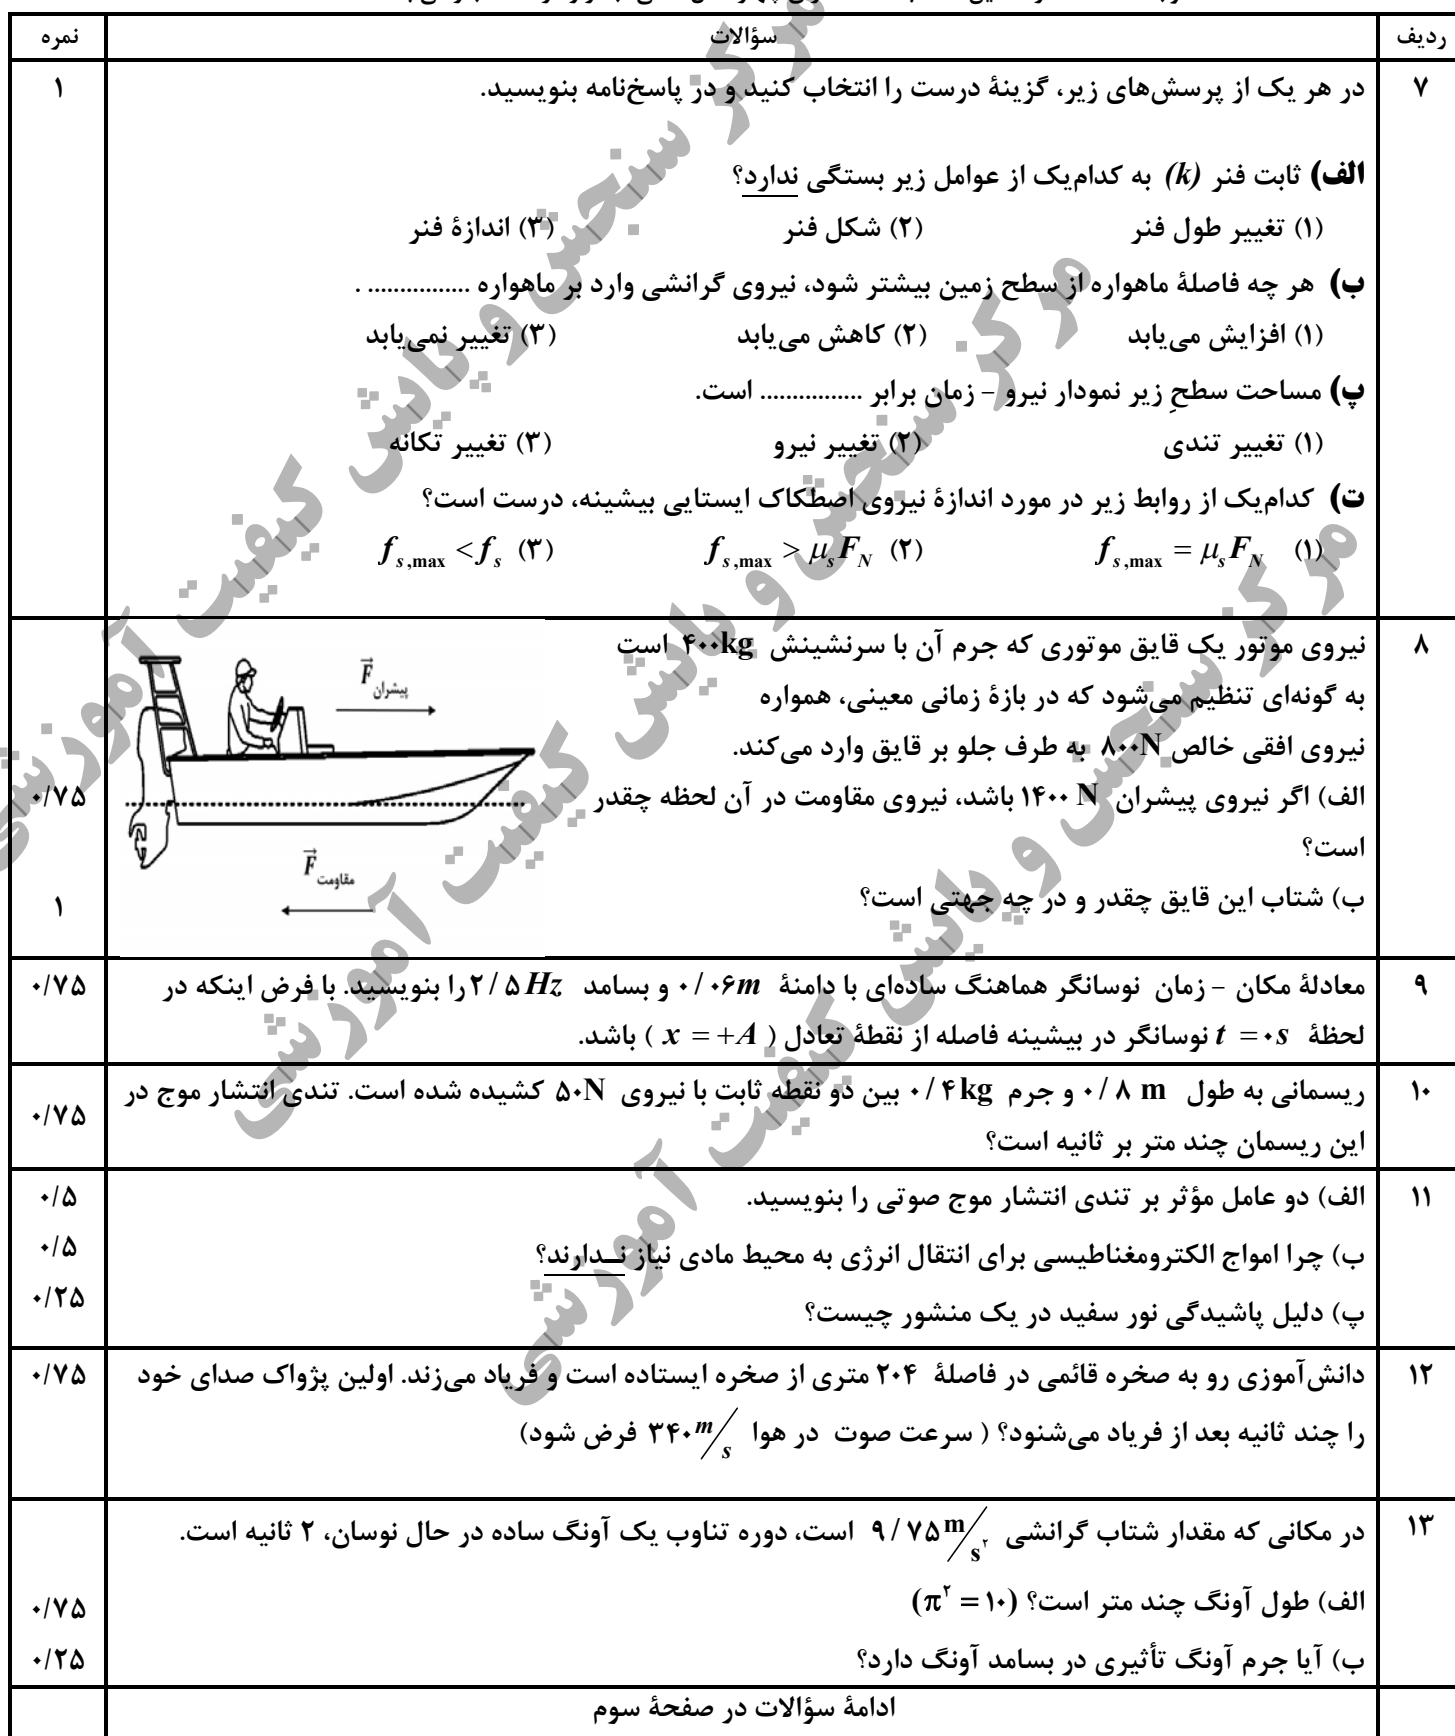 ردیف سؤالات نمره
۷ در هر یک از پرسش‌های زیر، گزینهٔ درست را انتخاب کنید و در پاسخ‌نامه بنویسید. ۱
الف) ثابت فنر (k) به کدام‌یک از عوامل زیر بستگی ندارد؟
(۱) تغییر طول فنر (۲) شکل فنر (۳) اندازهٔ فنر
ب) هر چه فاصلهٔ ماهواره از سطح زمین بیشتر شود، نیروی گرانشی وارد بر ماهواره ................ .
(۱) افزایش می‌یابد (۲) کاهش می‌یابد (۳) تغییر نمی‌یابد
پ) مساحت سطحِ زیر نمودار نیرو – زمان برابر ................ است.
(۱) تغییر تندی (۲) تغییر نیرو (۳) تغییر تکانه
ت) کدام‌یک از روابط زیر در مورد اندازهٔ نیروی اصطکاک ایستایی بیشینه، درست است؟
(۱) f_{s,max} = μ_s F_N (۲) f_{s,max} > μ_s F_N (۳) f_{s,max} < f_s
۸ نیروی موتور یک قایق موتوری که جرم آن با سرنشینش ۴۰۰kg است
به گونه‌ای تنظیم می‌شود که در بازهٔ زمانی معینی، همواره
نیروی افقی خالص ۸۰۰N به طرف جلو بر قایق وارد می‌کند.
الف) اگر نیروی پیشران ۱۴۰۰ N باشد، نیروی مقاومت در آن لحظه چقدر ۰/۷۵
است؟
ب) شتاب این قایق چقدر و در چه جهتی است؟ ۱
F پیشران
F مقاومت
۹ معادلهٔ مکان – زمان نوسانگر هماهنگ ساده‌ای با دامنهٔ ۰/۰۶m و بسامد ۲/۵Hz را بنویسید. با فرض اینکه در ۰/۷۵
لحظهٔ t = ۰s نوسانگر در بیشینه فاصله از نقطهٔ تعادل ( x = +A ) باشد.
۱۰ ریسمانی به طول ۰/۸ m و جرم ۰/۴kg بین دو نقطه ثابت با نیروی ۵۰N کشیده شده است. تندی انتشار موج در ۰/۷۵
این ریسمان چند متر بر ثانیه است؟
۱۱ الف) دو عامل مؤثر بر تندی انتشار موج صوتی را بنویسید. ۰/۵
ب) چرا امواج الکترومغناطیسی برای انتقال انرژی به محیط مادی نیاز نــدارند؟ ۰/۵
پ) دلیل پاشیدگی نور سفید در یک منشور چیست؟ ۰/۲۵
۱۲ دانش‌آموزی رو به صخره قائمی در فاصلهٔ ۲۰۴ متری از صخره ایستاده است و فریاد می‌زند. اولین پژواک صدای خود ۰/۷۵
را چند ثانیه بعد از فریاد می‌شنود؟ ( سرعت صوت در هوا ۳۴۰ m/s فرض شود)
۱۳ در مکانی که مقدار شتاب گرانشی ۹/۷۵ m/s² است، دوره تناوب یک آونگ ساده در حال نوسان، ۲ ثانیه است.
الف) طول آونگ چند متر است؟ (π² = ۱۰) ۰/۷۵
ب) آیا جرم آونگ تأثیری در بسامد آونگ دارد؟ ۰/۲۵
ادامهٔ سؤالات در صفحهٔ سوم
مرکز سنجش و پایش کیفیت آموزشی
مرکز سنجش و پایش کیفیت آموزشی
مرکز سنجش و پایش کیفیت آموزشی